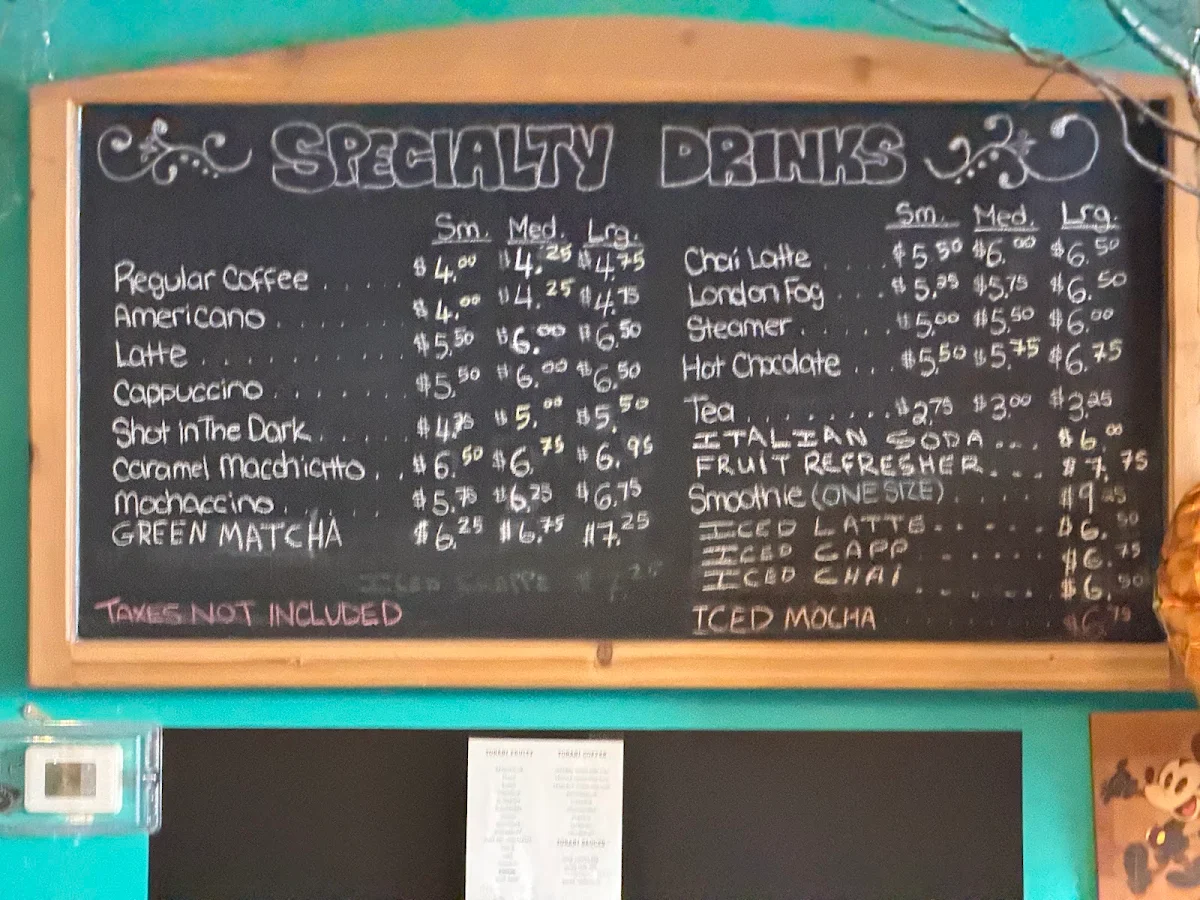 SPECIALTY DRINKS
Sm. Med. Lrg.
Regular Coffee ..... $4.00 $4.25 $4.75
Americano ........ $4.00 $4.25 $4.75
Latte ........... $5.50 $6.00 $6.50
Cappuccino ....... $5.50 $6.00 $6.50
Shot In The Dark ..... $4.75 $5.00 $5.50
Caramel Macchiatto .. $6.50 $6.75 $6.95
Mochaccino ...... $5.75 $6.25 $6.75
GREEN MATCHA $6.25 $6.75 $7.25
TAXES NOT INCLUDED
Sm. Med. Lrg.
Chai Latte .... $5.50 $6.00 $6.50
London Fog ... $5.25 $5.75 $6.50
Steamer ...... $5.00 $5.50 $6.00
Hot Chocolate ... $5.50 $5.75 $6.75
Tea ........ $2.75 $3.00 $3.25
ITALIAN SODA ... $6.00
FRUIT REFRESHER .... $7.75
Smoothie (ONE SIZE) ..... $9.25
ICED LATTE ...... $6.50
ICED CAPP ....... $6.75
ICED CHAI ..... $6.50
ICED MOCHA ........ $6.75